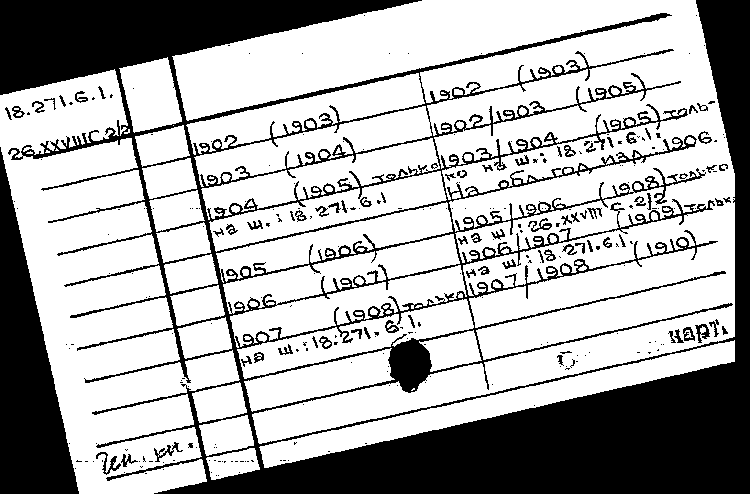 18.271.6.1.
26.XXVIIIС.2/2
1902 (1903)
1903 (1904)
1904 (1905) только
на ш.: 18.271.6.1
1905 (1906)
1906 (1907)
1907 (1908) только
на ш.: 18.271.6.1.
1902 (1903)
1902/1903 (1905)
1903/1904 (1905) толь-
ко на ш.: 18.271.6.1.
На обл. год изд.: 1906.
1905/1906 (1908) только
на ш/: 26.XXVIII С.2/2
1906/1907 (1909) тольк.
на ш/: 18.271.6.1.
1907/1908 (1910)
карт.
кн.